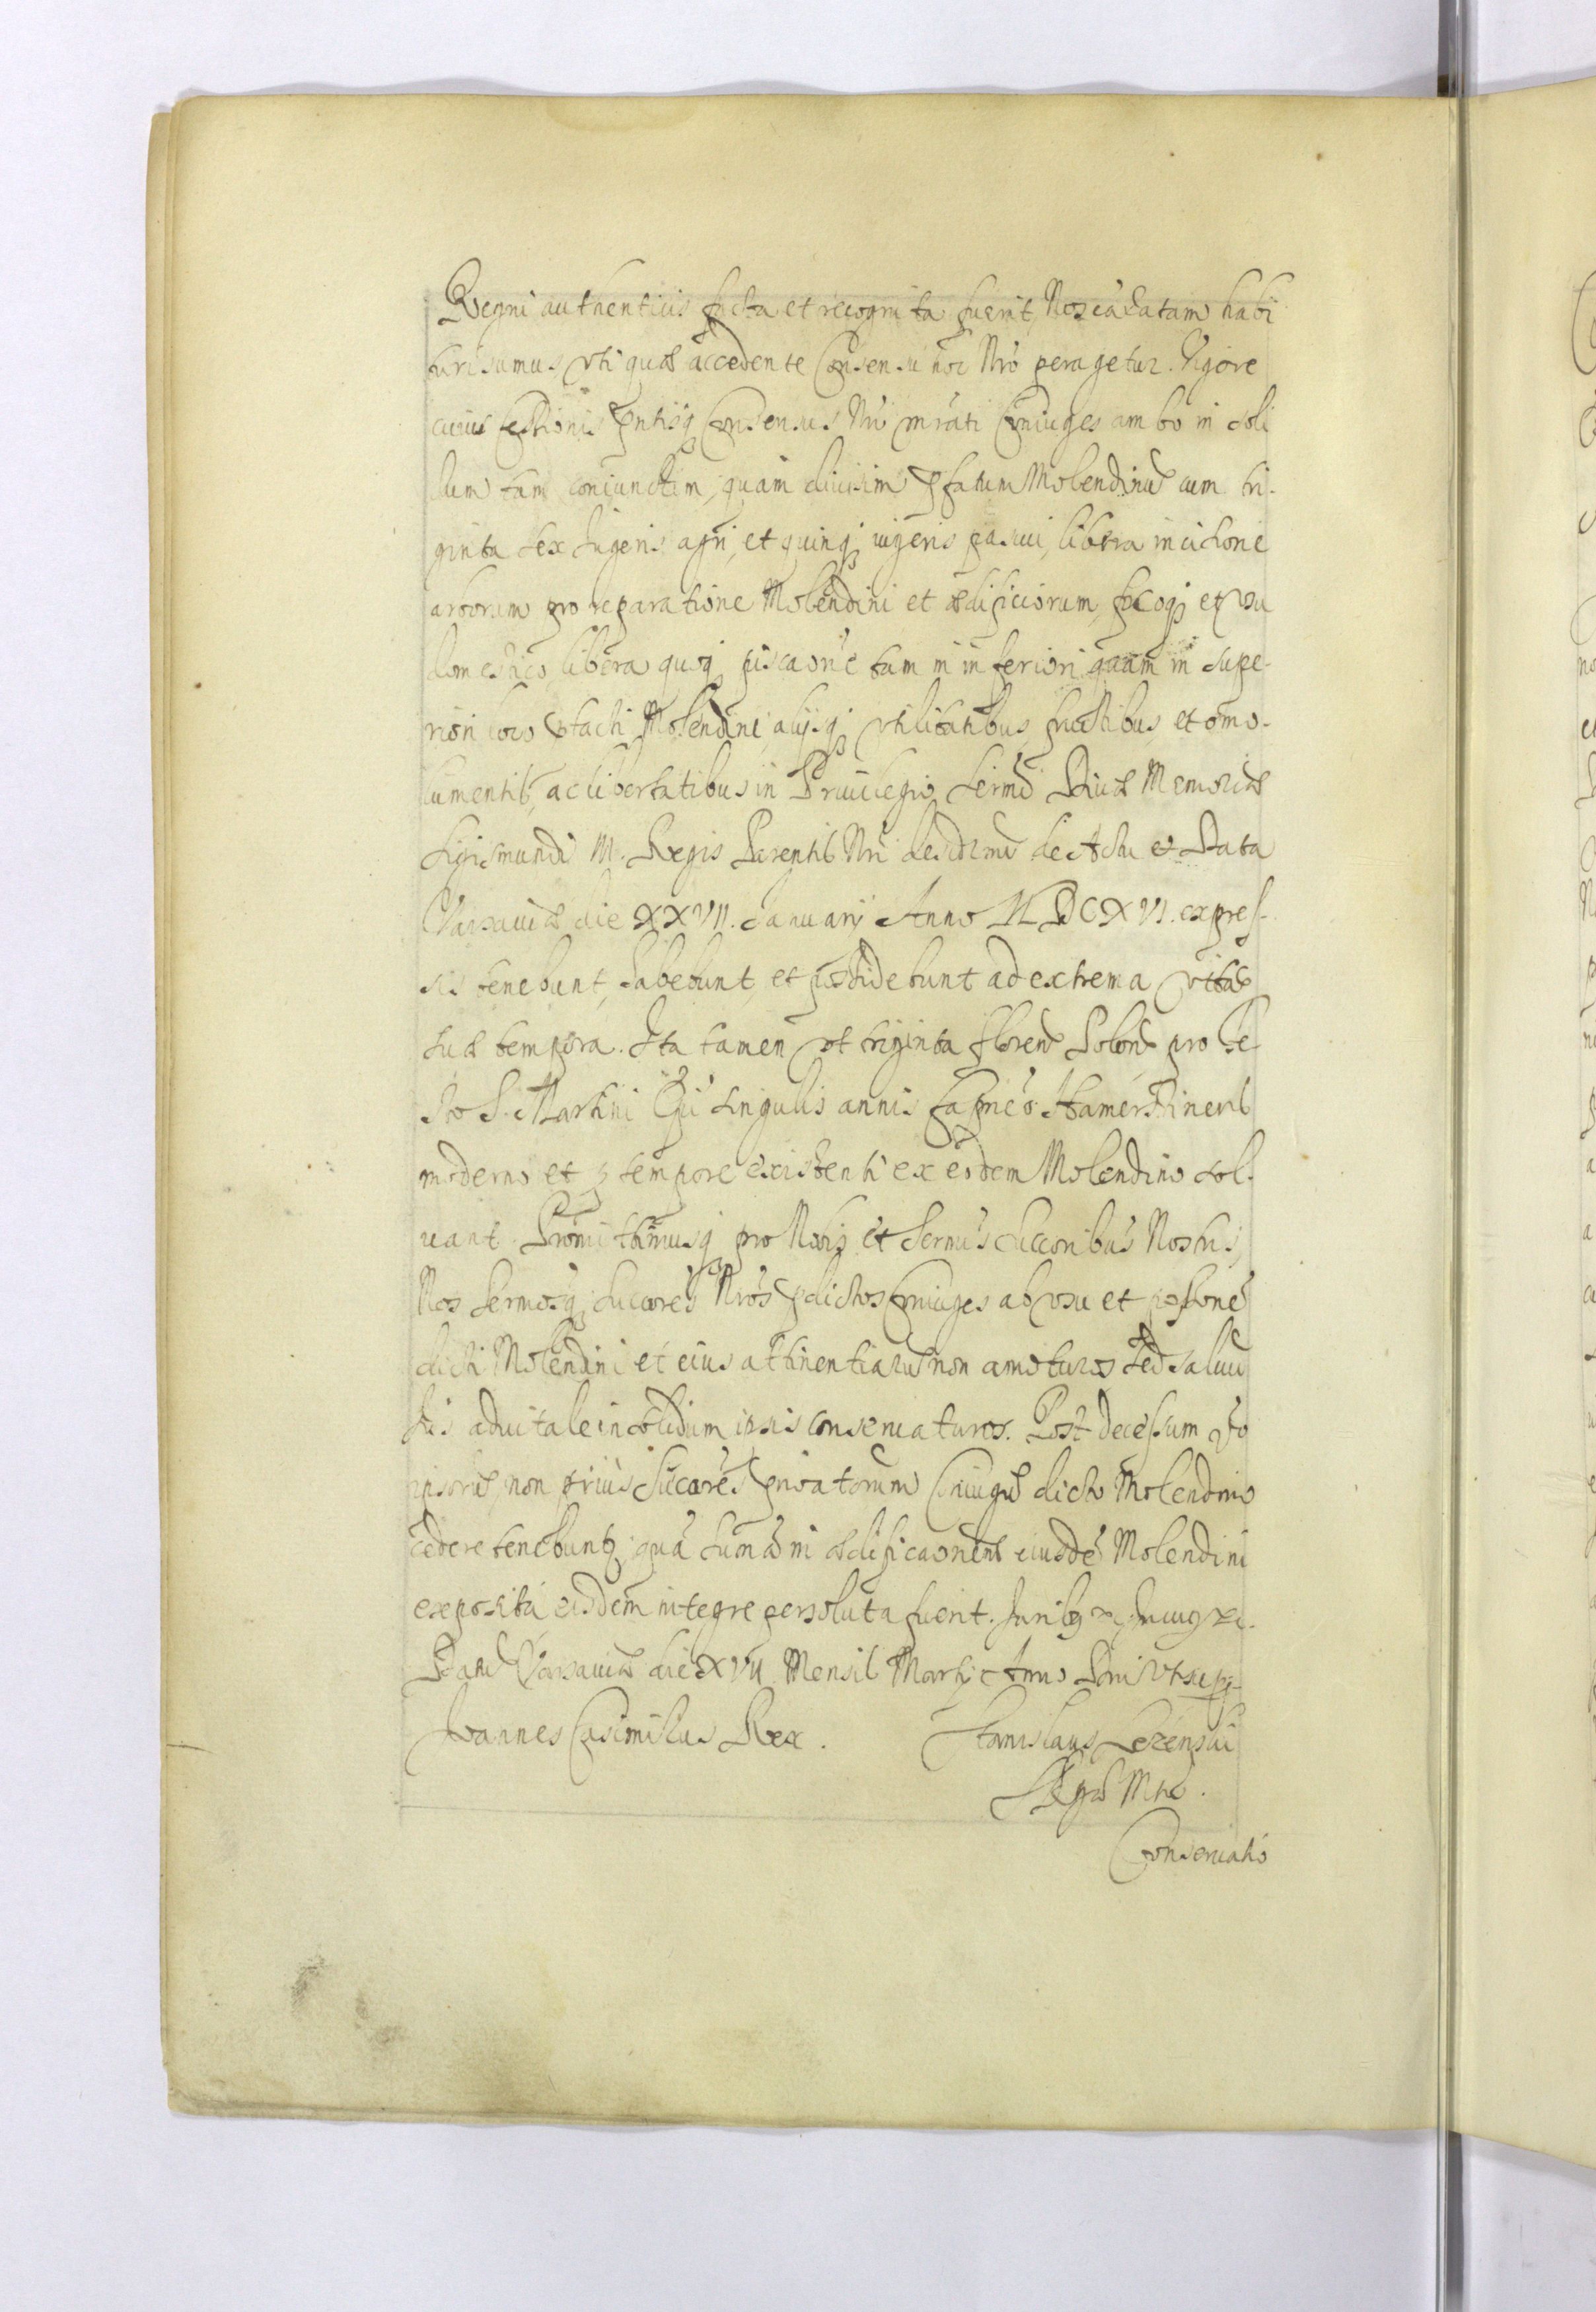 Regni authenticis facta et recognita fuerit, Nos eã Ratam habi
turi sumus vti quæ accedente Consensu hoc Nrõ peragetur. Vigore
cuius Cessionis pntisq Consensus Nri mrati Coniuges ambo in soli
dum tam coniunctim, quam diuisim pfatum Molendinũ cum tri-
ginta sex Iugeris agri, et quinq iugeris pascui, libera incisione
arborum pro reparatione Molendini et ædificiorum, focoq et vsu
domestico libera quoq piscaone tam in inferiori quam in supe-
riori loco pfacti Molendini, alijsq vtilitatibus fructibus, et emo-
lumentis, ac libertatibus in Priuilegio Sermi Diuæ Memoriæ
Sigismundi III. Regis Parentis Nri desidrmi de Actu et Data
Varsauiæ die XXVII. Ianuarij Anno MDCXVI. expres-
sis tenebunt, habebunt, et possidebunt ad extrema vitæ
suæ tempora. Ita tamen vt triginta floren Polon pro Fe-
sto S. Martini Epi singulis annis Capneo Hamersteinen
moderno et p tempore existenti ex eodem Molendino sol-
uant. Promittimusq pro Nobis et Sermis Succoribus Nostris,
Nos Sermosq Succores Nros pdictos Coniuges ab vsu et possone
dicti Molendini et eius attinentiarũ non amoturos sed saluũ
Ius aduitale in solidum ipsis conseruaturos. Post decessum vo
ipsorũ, non prius Succores priuatorum Coniugũ dicto Molendino
cedere tenebunt quã summa in ædificaonem eiusdẽ Molendini
exposita eisdem integre persoluta fuerit. Iuribq
Datũ Varsauiæ die XVII Mensis Martij Anno Dni vt supra
Ioannes Casimirus Rex. Stanislaus
Conseruatio